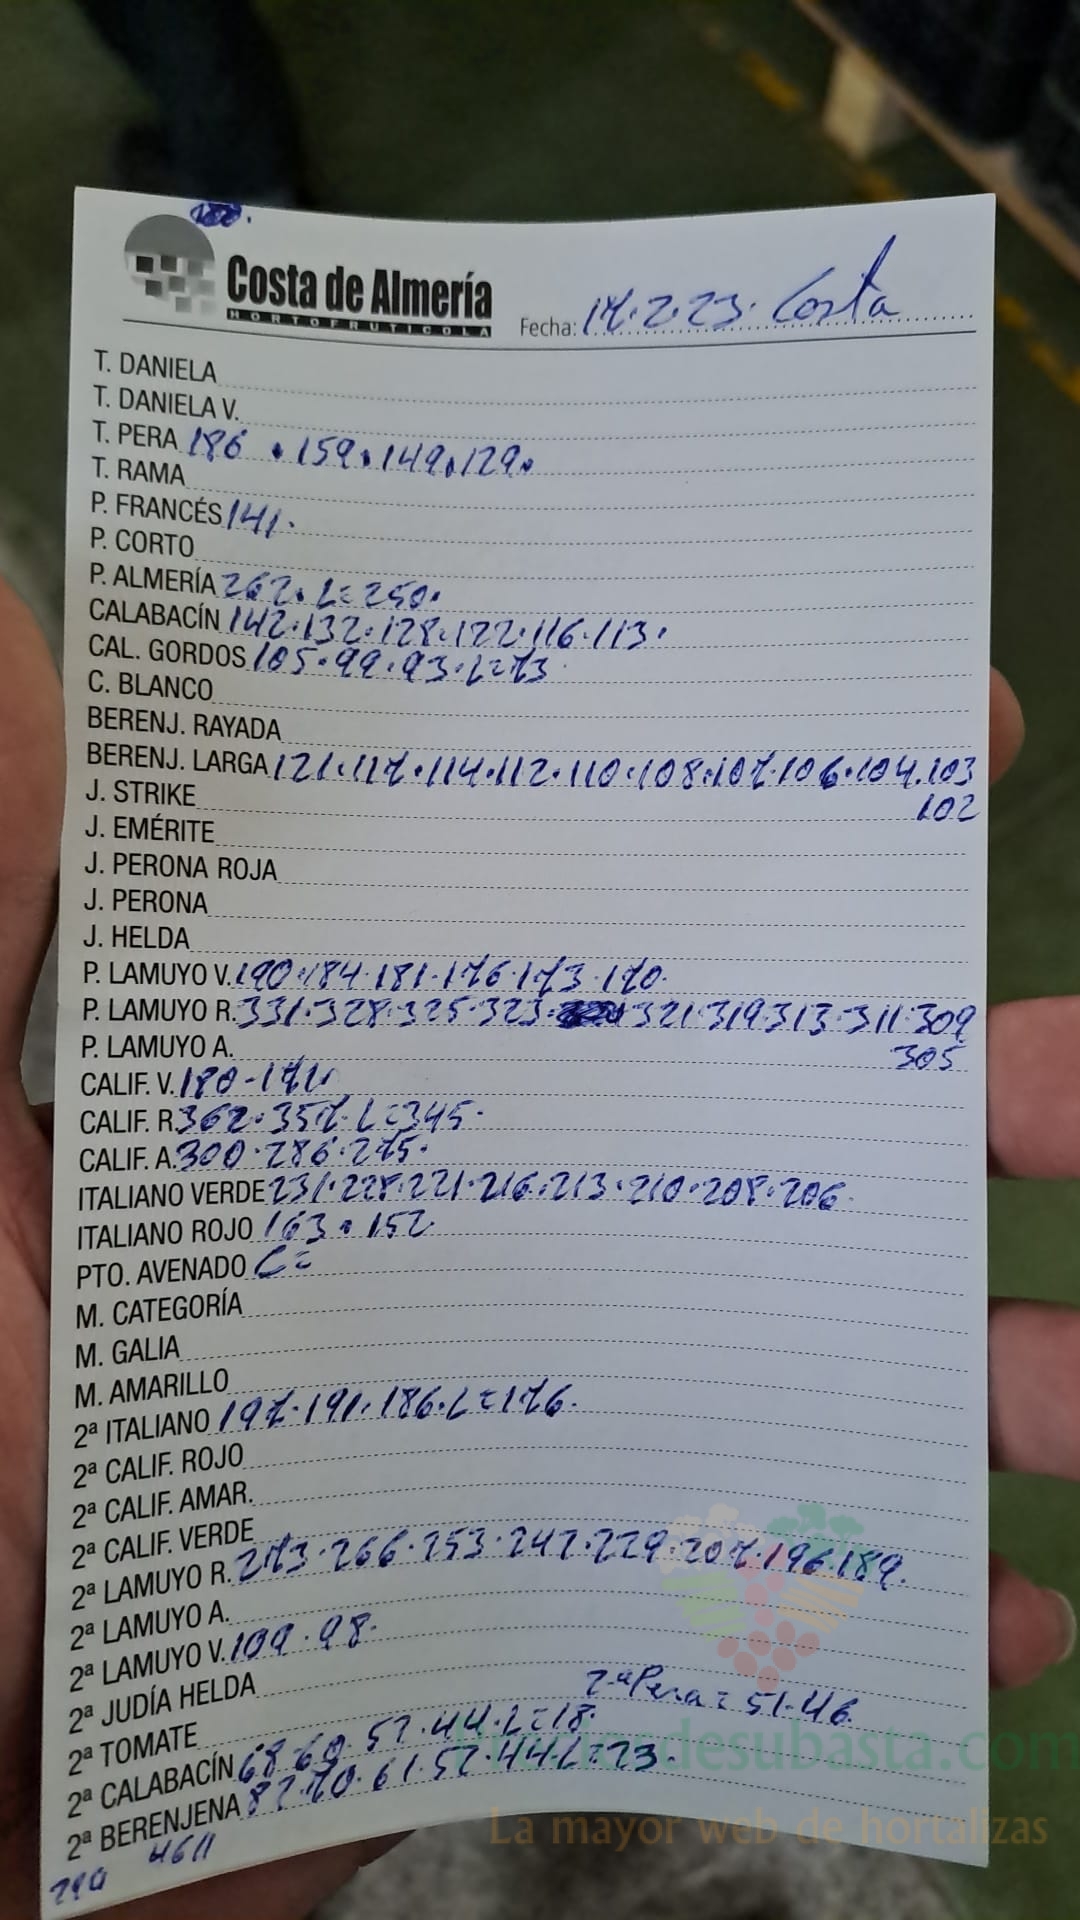 Costa de Almería
HORTOFRUTICOLA
Fecha: 17.2.23. Costa
T. DANIELA
T. DANIELA V.
T. PERA 186 . 159 . 149 . 129.
T. RAMA
P. FRANCÉS 141.
P. CORTO
P. ALMERÍA 262. L=250.
CALABACÍN 142.132.128.122.116.113.
CAL. GORDOS 105.99.93.L=73
C. BLANCO
BERENJ. RAYADA
BERENJ. LARGA 121.117.114.112.110.108.107.106.104.103
102
J. STRIKE
J. EMÉRITE
J. PERONA ROJA
J. PERONA
J. HELDA
P. LAMUYO V. 190.184.181.176.173.170.
P. LAMUYO R. 331.328.325.323. 321.319.313.311.309
305
P. LAMUYO A.
CALIF. V. 180-171.
CALIF. R. 362.357.L=345.
CALIF. A. 300.286.275.
ITALIANO VERDE 231.228.221.216.213.210.208.206.
ITALIANO ROJO 163.152
PTO. AVENADO C=
M. CATEGORÍA
M. GALIA
M. AMARILLO
2ª ITALIANO 197.191.186.L=176.
2ª CALIF. ROJO
2ª CALIF. AMAR.
2ª CALIF. VERDE
2ª LAMUYO R. 273.266.253.242.229.207.196.189.
2ª LAMUYO A.
2ª LAMUYO V. 109.98.
2ª JUDÍA HELDA
2ª Pera = 51.46.
2ª TOMATE
2ª CALABACÍN 68.60.52.44.L=18.
2ª BERENJENA 82.70.61.52.44.L=23.
4611
290
desubasta.com
La mayor web de hortalizas